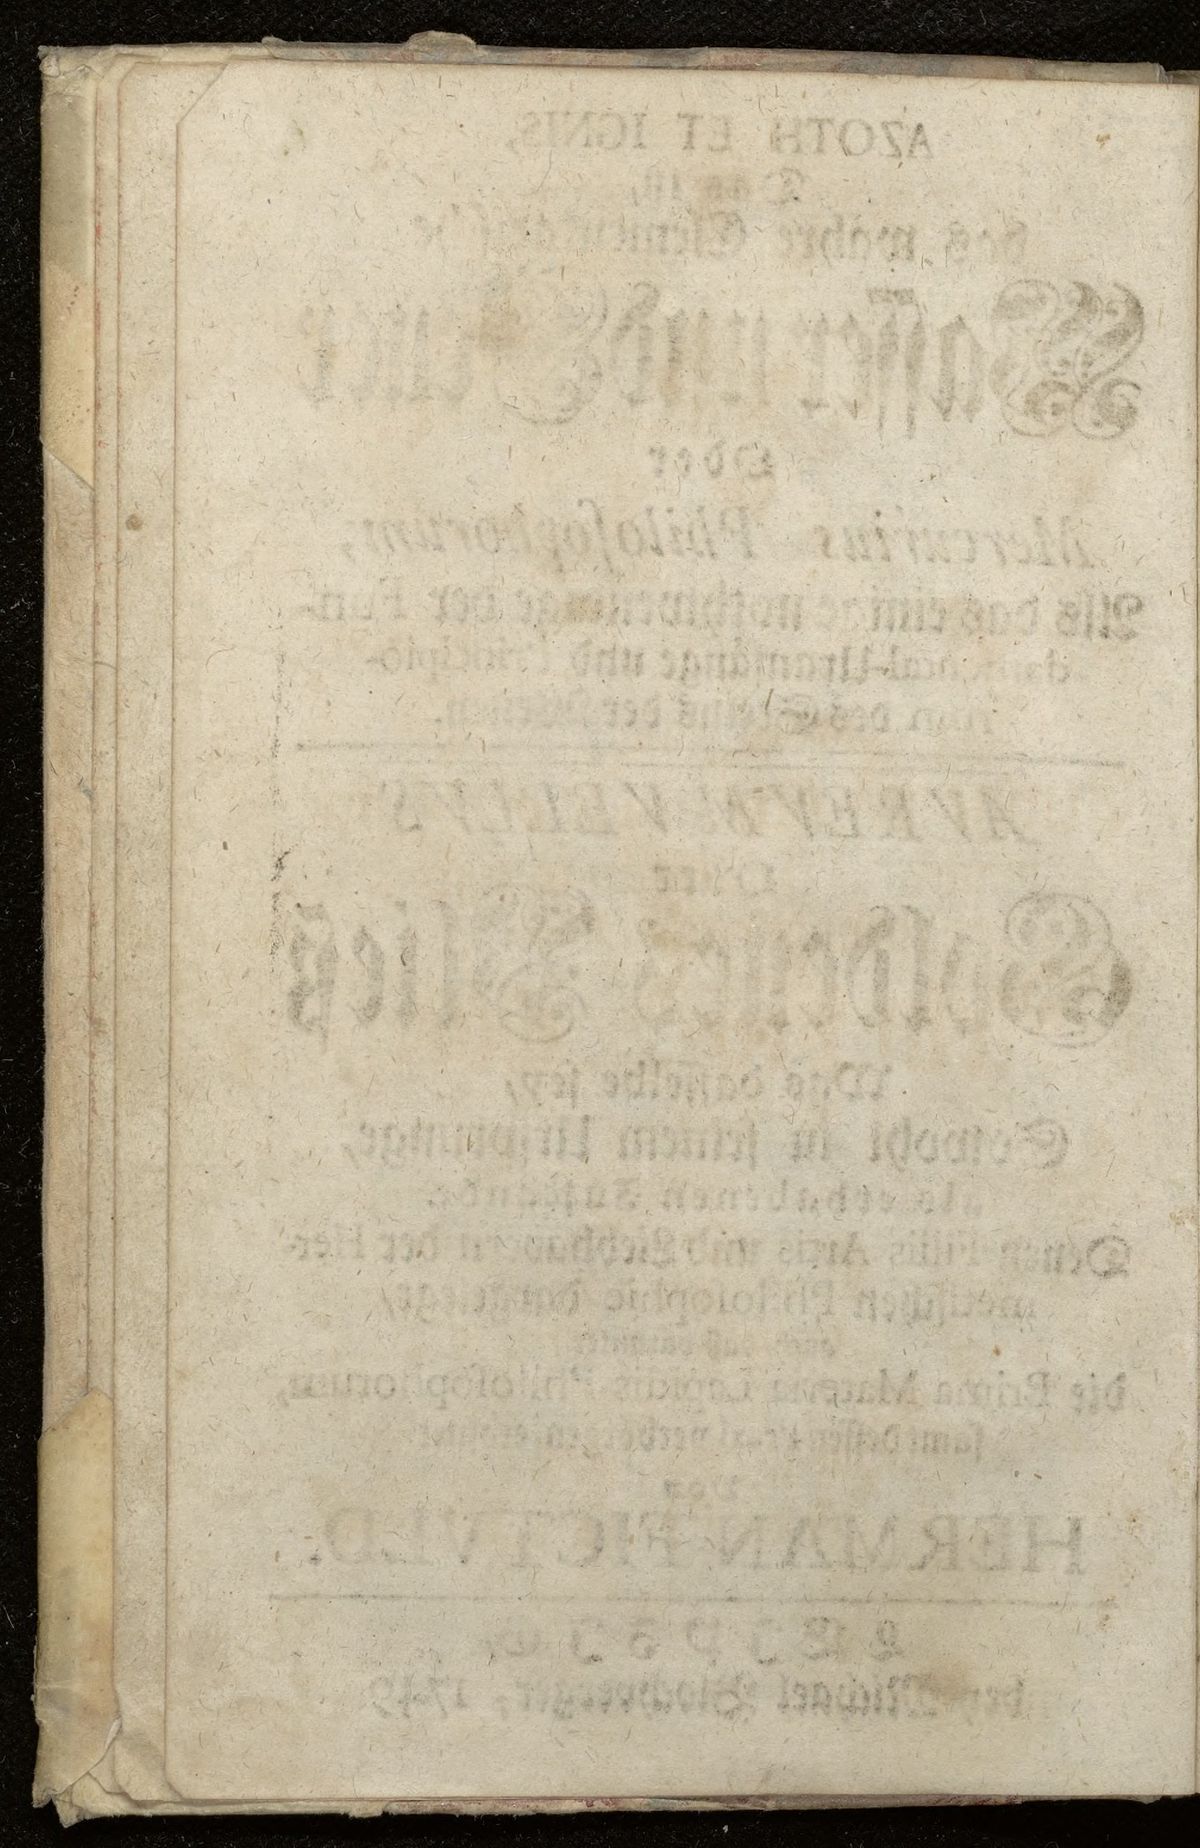 AZOTH ET IGNIS,
Das ist,
das wahre Elementarische
Wasser und Feuer
Oder
Mercurius Philosophorum,
Als das einige nothwendige der Fun-
damental-Uranfänge und Principio-
rum des Steins der Weisen.
AVREVM VELLVS
Oder
Goldenes Vließ
Was dasselbe sey,
Sowohl in seinem Ursprunge,
als erhabenen Zustande.
Denen Filiis Artis und Liebhabern der Her-
metischen Philosophie dargeleget,
auch daß darunter
die Prima Materia Lapidis Philosophorum,
samt dessen Praxi verborgen
von
HERMAN FICTVLD.
LEIPZIG,
bey Michael Blochberger, 1749